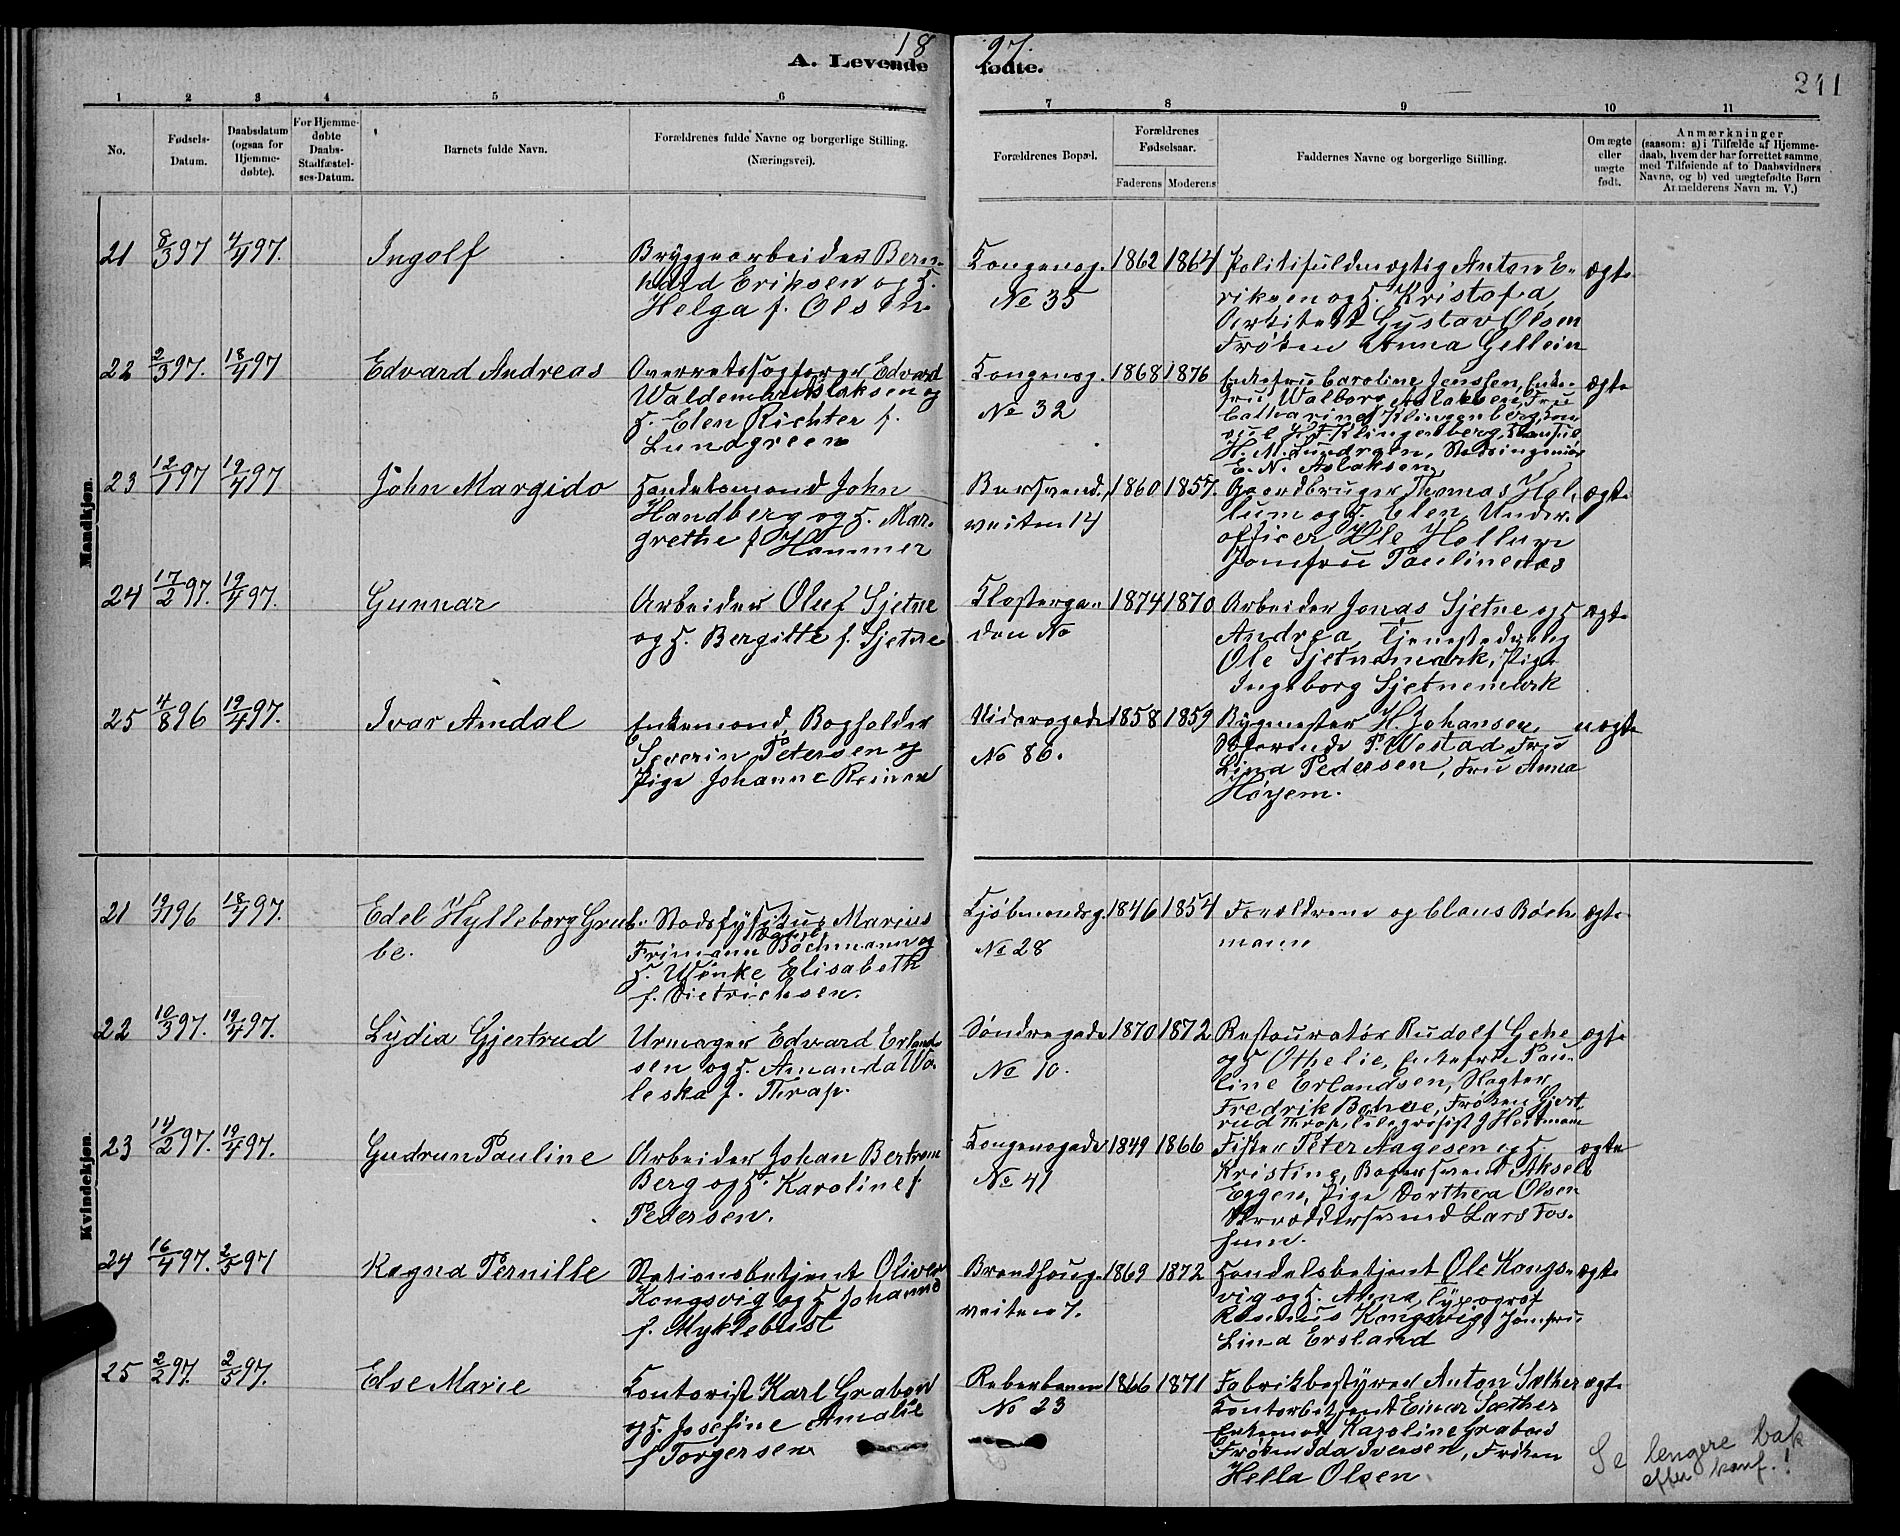 18 97.
A. Levende fødte.
241
1 2 3 4 5 6 7 8 9 10 11
No.
Fødsels-
Datum.
Daabsdatum
(ogsaa for
Hjemme-
døbte).
For Hjemme-
døbte
Daabs-
Stadfæstel-
ses-Datum.
Barnets fulde Navn.
Forældrenes fulde Navne og borgerlige Stilling.
(Næringsvei).
Forældrenes Bopæl.
Forældrenes
Fødselsaar.
Faderens Moderens
Faddernes Navne og borgerlige Stilling.
Om ægte
eller
uægte
født.
Anmærkninger
(saasom: a) i Tilfælde af Hjemme-
daab, hvem der har forrettet samme
med Tilføiende af to Daabsvidners
Navne, og b) ved uægtefødte Børn
Anmelderens Navn m. V.)
Mandkjøn.
21 8/3 97 4/4 97. Ingolf
Bryggearbeider Bern-
hard Eriksen og H.
Helga f. Olsen.
Kongensg.
No 35
1862 1864
Politifuldmægtig Anton E-
riksen og H. Kristofa
Arkitekt Gustav Olsen
Frøken Anna Gellein
ægte
22 2/3 97. 18/4 97 Edvard Andreas
Overretssagfører Edvard
Waldemar Aslaksen og
H. Elen Richter f.
Lundgreen
Kongensg.
No 32
1868 1876
Enkefru Caroline Jenssen, Enke-
fru Walborg Aslaksen, Fru
Catharina Klingenberg, Kon-
sul Klingenberg, Konsul
H. M. Lundgren, Stadsingeniør
E. N. Aslaksen
ægte
23 12/1 97 19/4 97 John Margido
Handelsmand John
Handberg og H. Mar-
grethe f Hammer
Bersvend-
veiten 14
1860 1857.
Gaardbruger Thomas Hol-
lum og H. Elen, Under-
officer Ole Hollum
Jomfru Pauline Aas
ægte
24 17/2 97. 19/4 97. Gunnar
Arbeider Oluf Sjetne
og H. Bergitte f. Sjetne
Klostergan
den No
1874 1870
Arbeider Jonas Sjetne og H
Andrea, Tjenestedreng
Ole Sjetnemark, Pige
Ingeborg Sjetnemark
ægte
25 4/8 96 19/4 97. Ivar Amdal
Enkemand, Bogholder
Severin Petersen og
Pige Johanne Reinen
Nidarosgade
No 86.
1858 1859
Bygmester H. Johansen,
P. Westad, Fru
Lina Pedersen, Fru Anna
Høyem.
uægte
Kvindekjøn.
21 96 18/4 97. Edel Hylleborg Grub-
be.
Stadsfysikus Marius
Frimann Bøchmann og
H. Wenke Elisabeth
f. Dietrichsen.
Kjøbmandsg.
No 28
1846 1854
Forældrene og Claus Bøch
mann
ægte
22 10/3 97. 19/4 97. Lydia Gjertrud
Urmager Edvard Erland-
sen og H. Amanda Wa-
leska f. Thrap.
Søndregade
No 10.
1870 1872
Restauratør Rudolf Gehe
og H Othelie, Enkefru Pau-
line Erlandsen, Slagter
Fredrik Bohne, Frøken Gjert-
rud Thrap, J Hestmann
ægte
23 14/2 97. 19/4 97. Gudrun Pauline
Arbeider Johan Bertram
Berg og H. Karoline f.
Pedersen.
Kongensgade
No 41
1849 1866
Fisker Peter Aagesen og H
Kristine, Bagersvend Aksel
Eggen, Pige Dorthea Olsen
Skræddersvend Lars Fos-
hum.
ægte
24 16/4 97. 2/5 97 Ragna Pernille
Stationsbetjent Oliver
Kongsvig og H Johanna
f. Myklebust
Brandhaug-
veiten 7.
1869 1872
Handelsbetjent Ole Kongs-
vig og H. Anna, Typograf
Rasmus Kongsvig, Jomfru
Lina Ersland
ægte
25 2/2 97. 2/5 97. Else Marie
Kontorist Karl Grabow
og H. Josefine Amalie
f Torgersen
Reberbanen
No 23
1866 1871
Fabrikbestyrer Anton Sæther
Kontorbetjent Einar Sæther
Karoline Grabow
Frøken Ida Iversen, Frøken
Hella Olsen
ægte
Se lengere bak
efter konf.!